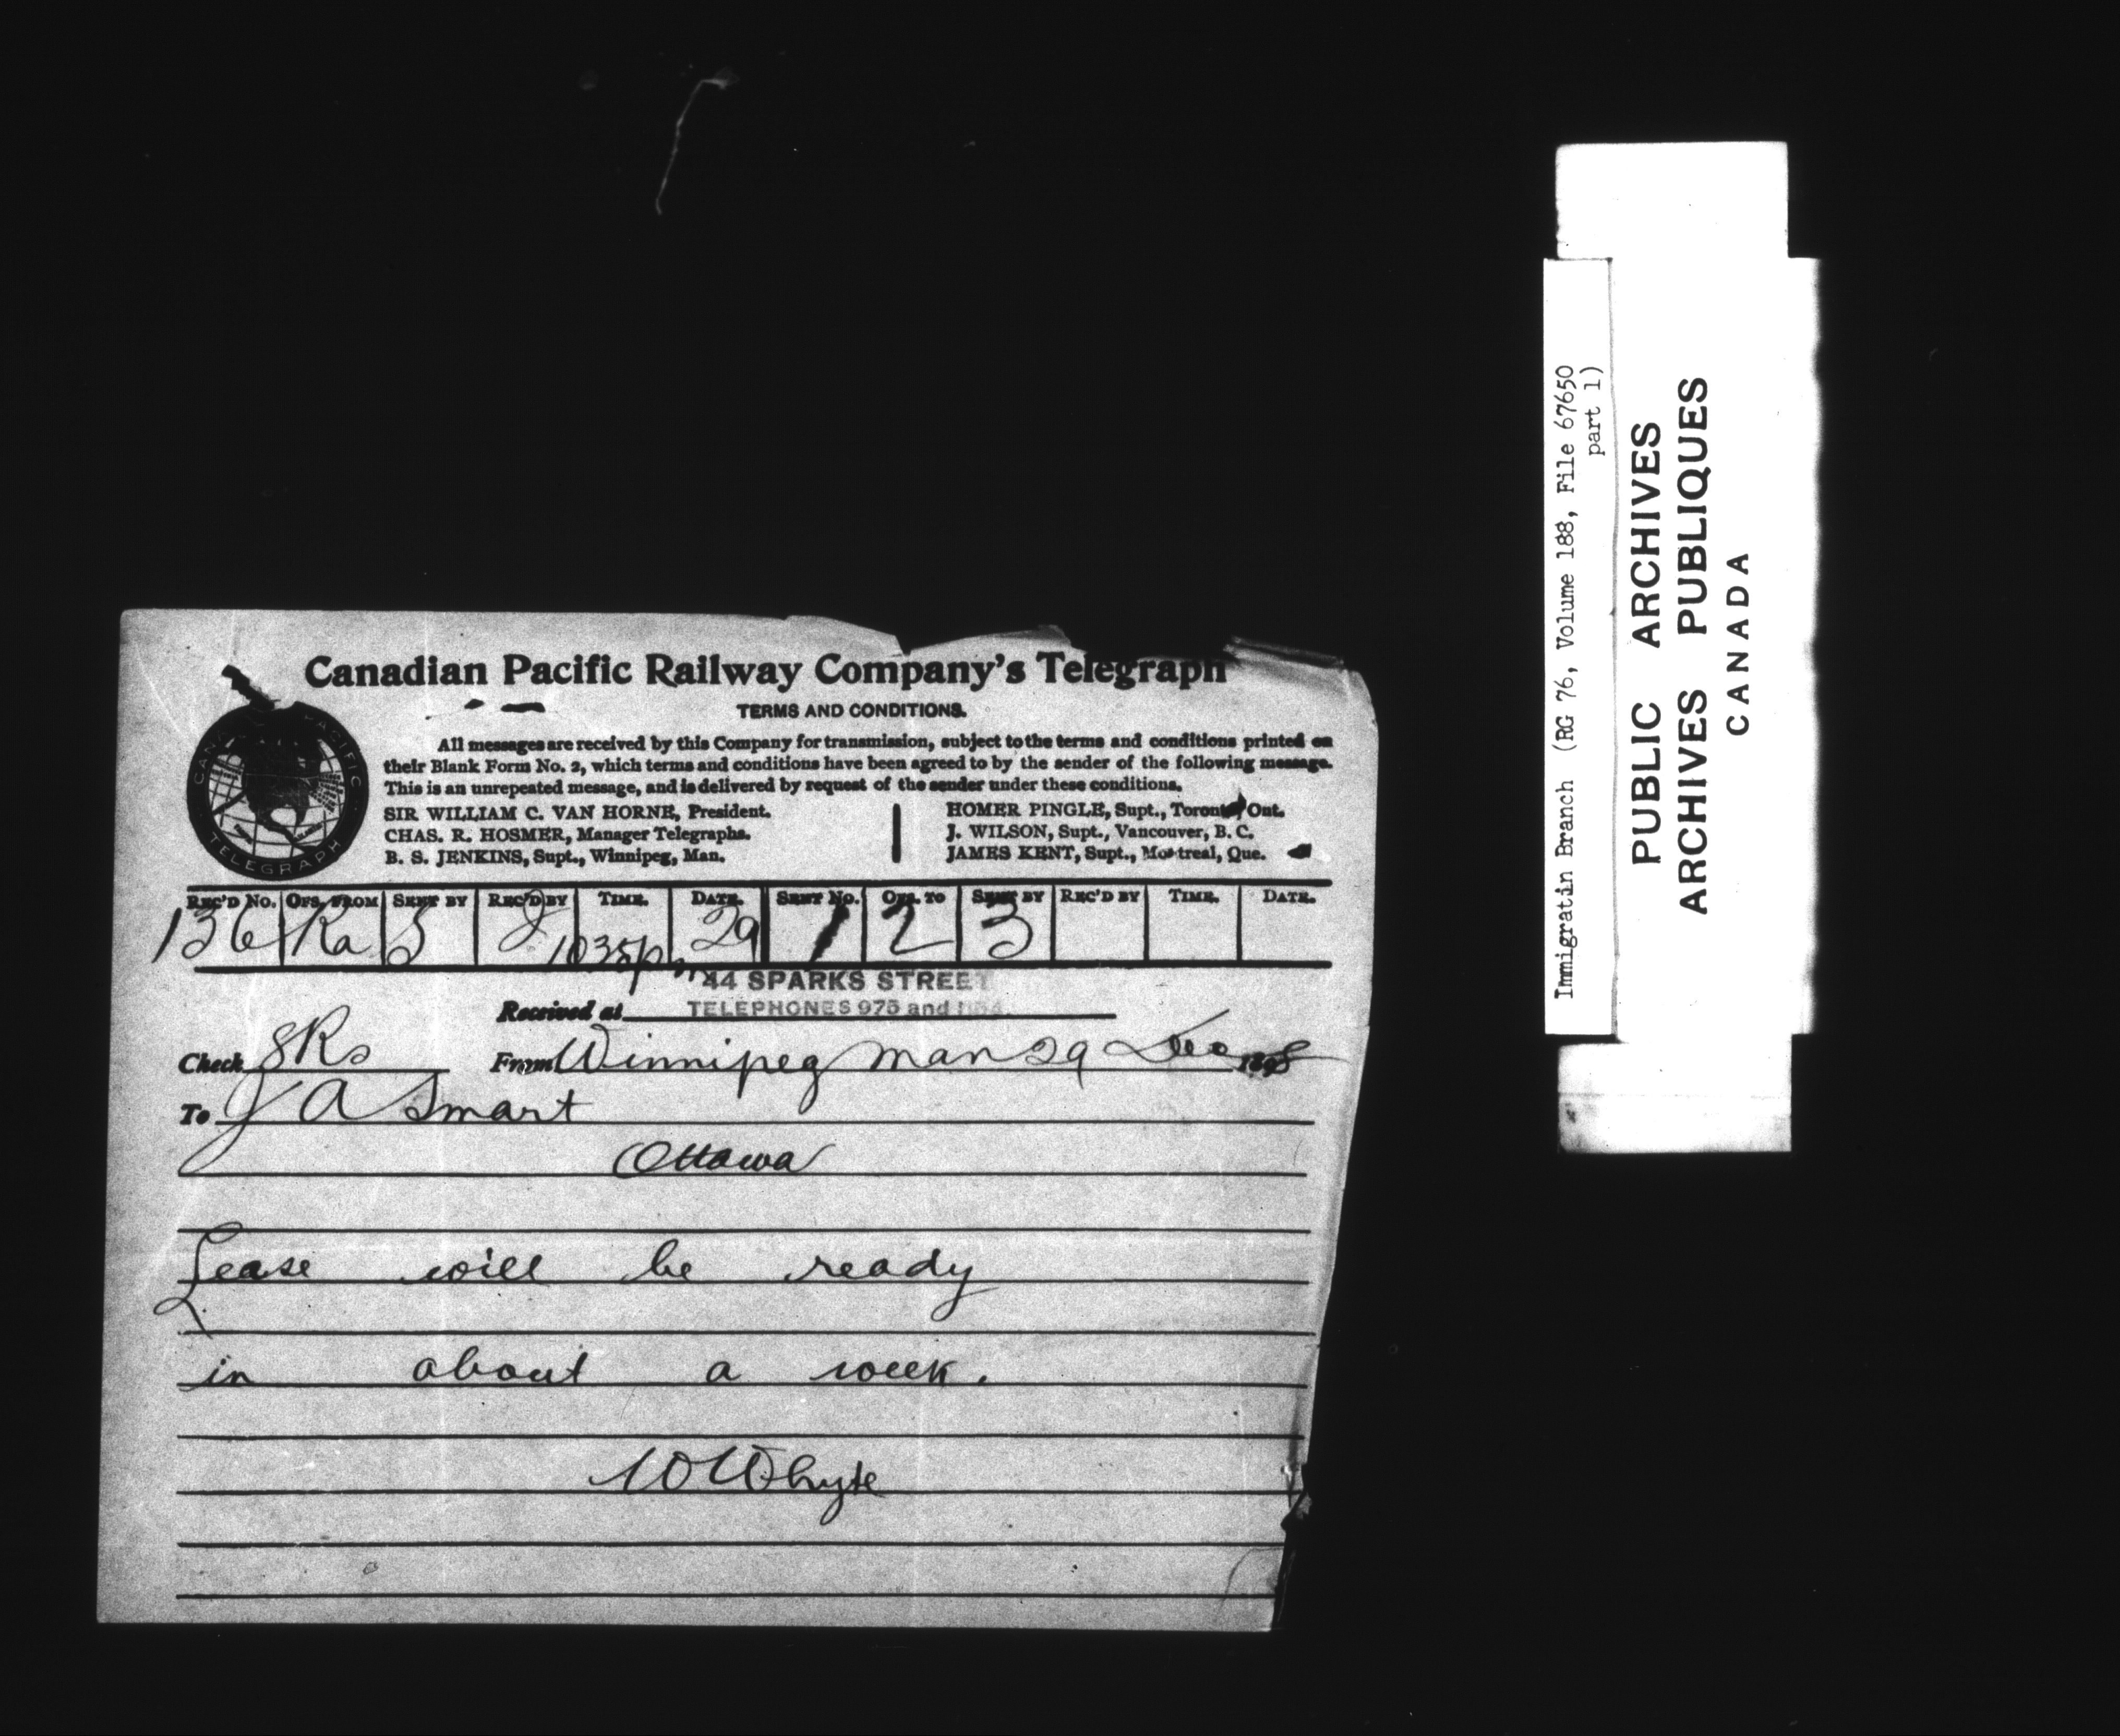 Canadian Pacific Railway Company's Telegraph
TERMS AND CONDITIONS.
All messages are received by this Company for transmission, subject to the terms and conditions printed on
their Blank Form No. 2, which terms and conditions have been agreed to by the sender of the following message.
This is an unrepeated message, and is delivered by request of the sender under these conditions.
SIR WILLIAM C. VAN HORNE, President.
CHAS. R. HOSMER, Manager Telegraphs.
B. S. JENKINS, Supt., Winnipeg, Man.
HOMER PINGLE, Supt., Toronto, Ont.
J. WILSON, Supt., Vancouver, B. C.
JAMES KENT, Supt., Montreal, Que.
CANADIAN PACIFIC
TELEGRAPH
REC'D NO. OFS. FROM SENT BY REC'D BY TIME. DATE. SENT NO. OFS. TO SENT BY REC'D BY TIME. DATE.
136 Ra S 1035pm 29 1 2 3
44 SPARKS STREET
Received at TELEPHONES 975 and
Check 8 From Winnipeg Man 29 Dec 1898
To J A Smart
Ottawa
Lease will be ready
in about a week.
W Whyte
Immigratin Branch (RG 76, Volume 188, File 67650
part 1)
PUBLIC ARCHIVES
ARCHIVES PUBLIQUES
CANADA